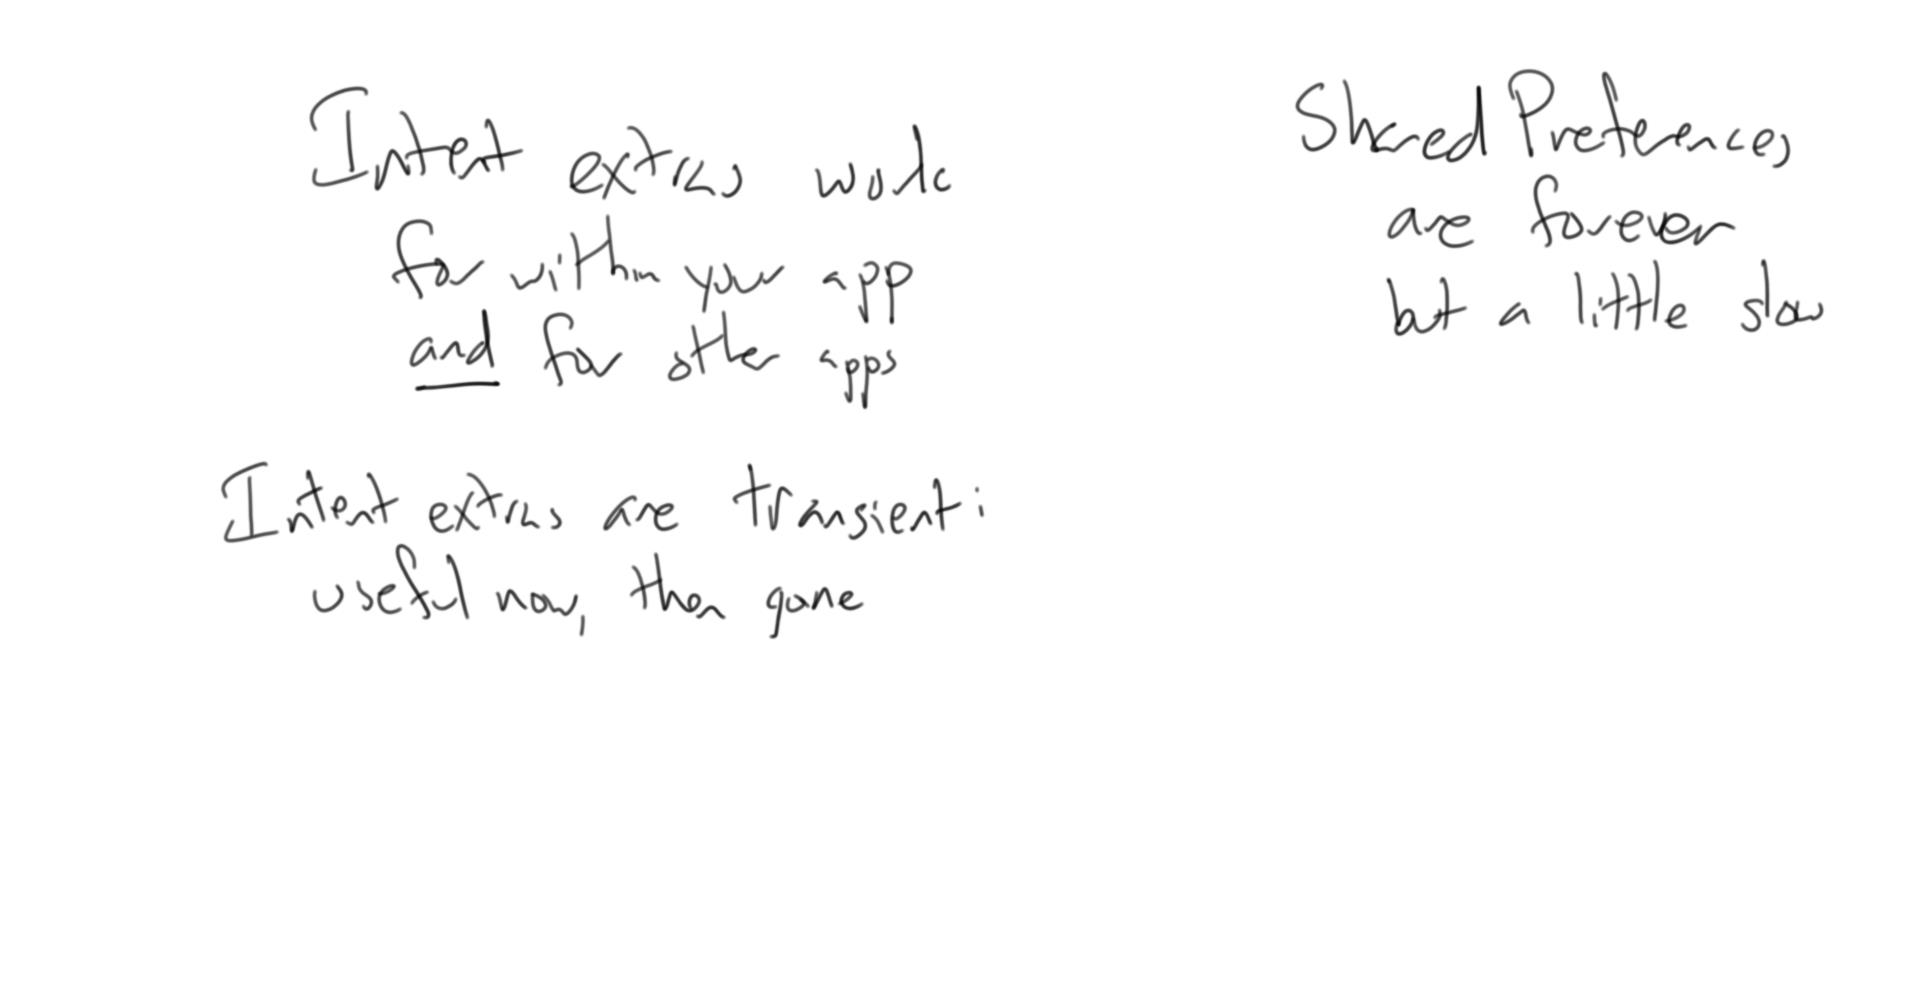 Intent extras work
for within your app
and for other apps
Intent extras are transient:
useful now, then gone
Shared Preferences
are forever
but a little slow